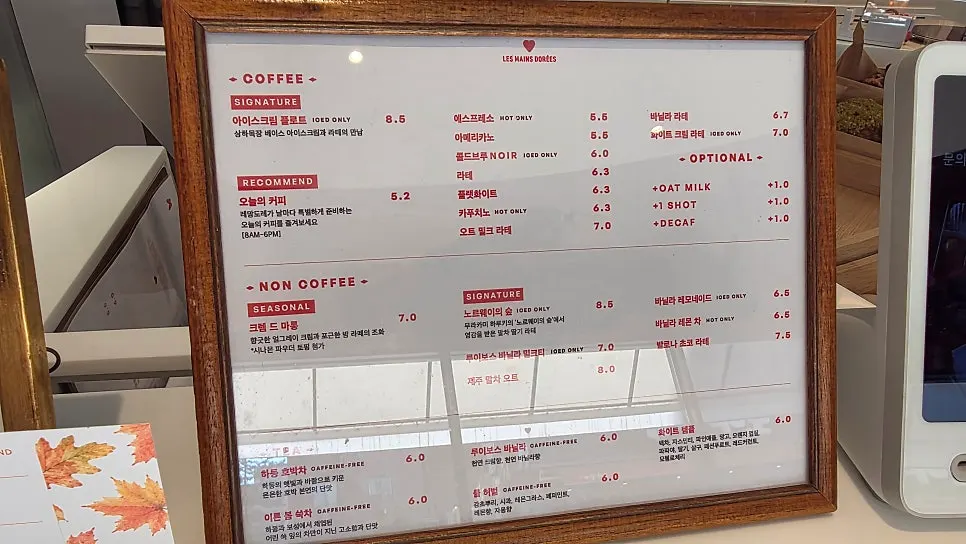 LES MAINS DORÉES
COFFEE
SIGNATURE
아이스크림 플로트 ICED ONLY 8.5
상하목장 베이스 아이스크림과 라떼의 만남
RECOMMEND
오늘의 커피 5.2
레망도레가 날마다 특별하게 준비하는
오늘의 커피를 즐겨보세요
[8AM-6PM]
에스프레소 HOT ONLY 5.5
아메리카노 5.5
콜드브루 NOIR ICED ONLY 6.0
라떼 6.3
플랫화이트 6.3
카푸치노 HOT ONLY 6.3
오트 밀크 라떼 7.0
바닐라 라떼 6.7
화이트 크림 라떼 ICED ONLY 7.0
OPTIONAL
+OAT MILK +1.0
+1 SHOT +1.0
+DECAF +1.0
NON COFFEE
SEASONAL
크렘 드 마롱 7.0
향긋한 얼그레이 크림과 포근한 밤 라떼의 조화
*시나몬 파우더 토핑 첨가
SIGNATURE
노르웨이의 숲 ICED ONLY 8.5
무라카미 하루키의 '노르웨이의 숲'에서
영감을 받은 말차 딸기 라떼
루이보스 바닐라 밀크티 ICED ONLY 7.0
제주 말차 오트 8.0
바닐라 레모네이드 ICED ONLY 6.5
바닐라 레몬 차 HOT ONLY 6.5
발로나 초코 라떼 7.5
TEA
하동 호박차 CAFFEINE-FREE 6.0
하동의 햇빛과 바람으로 키운
은은한 호박 본연의 단맛
이른 봄 쑥차 CAFFEINE-FREE 6.0
하동과 보성에서 채엽된
어린 쑥 잎의 차만이 지닌 고소함과 단맛
루이보스 바닐라 CAFFEINE-FREE 6.0
천연 크림향, 천연 바닐라향
쿨 허벌 CAFFEINE-FREE 6.0
감초뿌리, 사과, 레몬그라스, 페퍼민트,
레몬향, 자몽향
화이트 템플 6.0
백차, 자스민티, 파인애플, 망고, 오렌지 껍질,
파파야, 딸기, 살구, 패션푸르트, 레드커런트,
모렐로체리
ND
문의